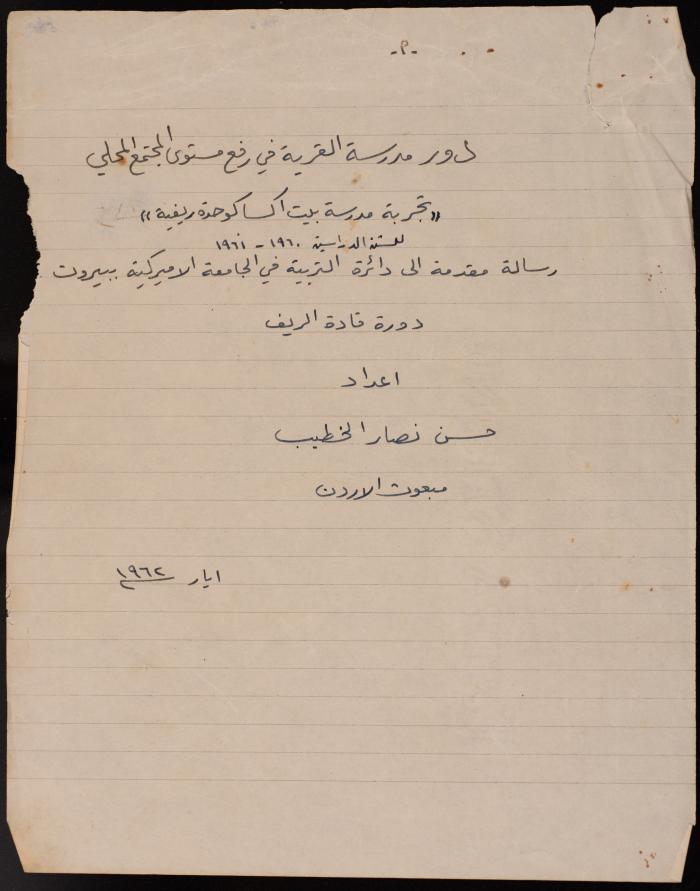 -م-
دور مدرسة القرية في رفع مستوى المجتمع المحلي
"تجربة مدرسة بيت اكسا كوحدة ريفية"
للسنة الدراسية ١٩٦٠ - ١٩٦١
رسالة مقدمة الى دائرة التربية في الجامعة الاميركية ببيروت
دورة قادة الريف
اعداد
حسن نصار الخطيب
مبعوث الاردن
ايار ١٩٦٢